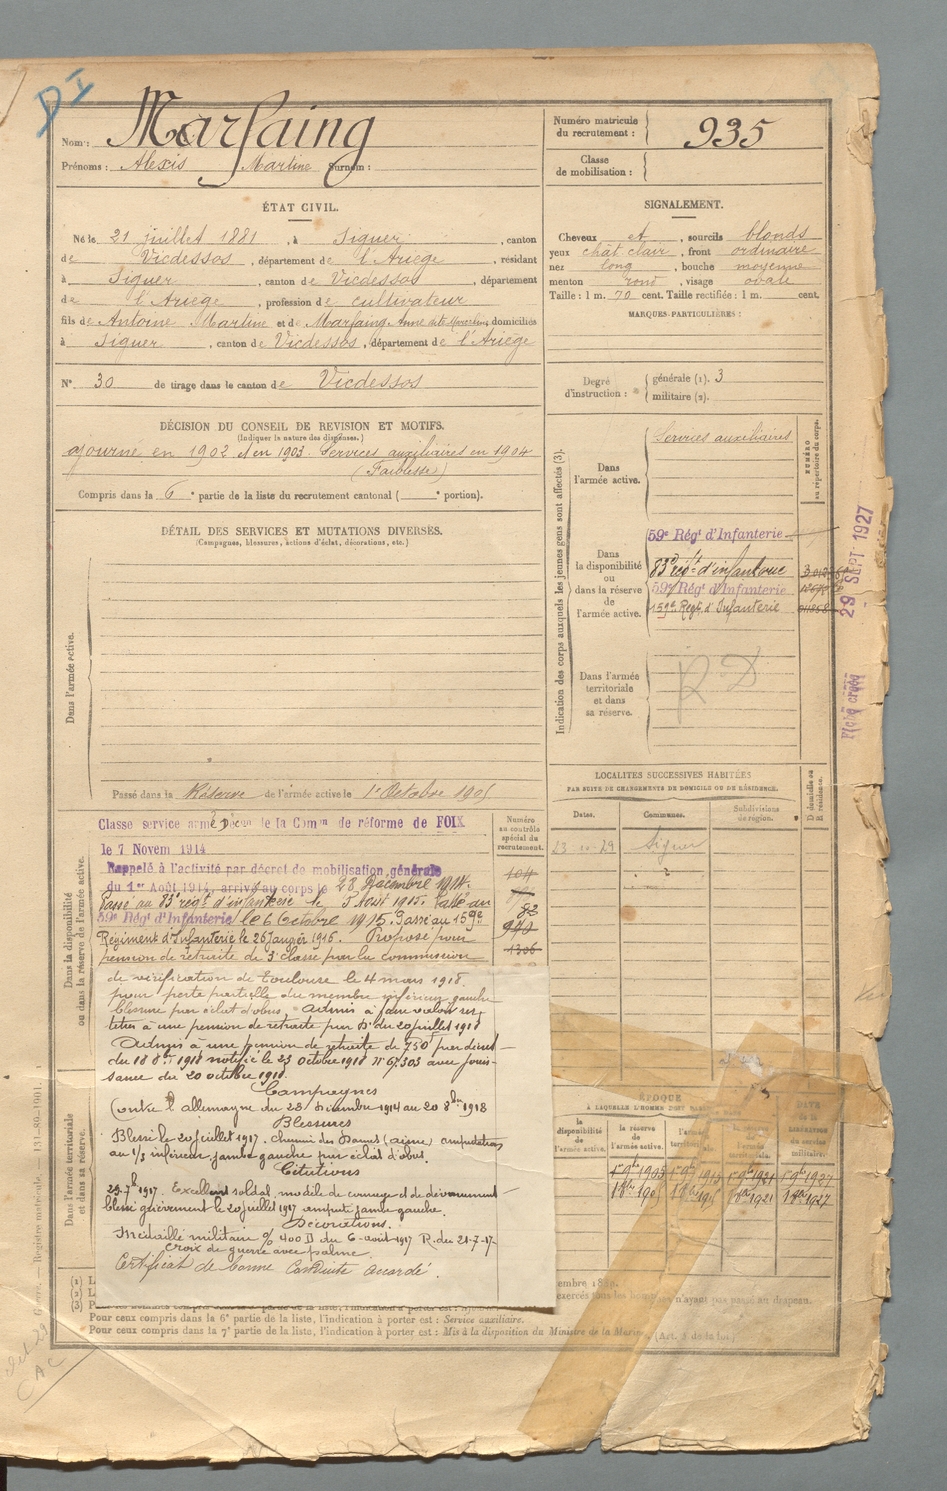 DI
Nom : Marfaing
Prénoms : Alexis Martine Surnom :
Numéro matricule
du recrutement : 935
Classe
de mobilisation :
ÉTAT CIVIL.
Né le 21 juillet 1881, à Siguer, canton
de Vicdessos, département de l'Ariège, résidant
à Siguer, canton de Vicdessos, département
de l'Ariège, profession de cultivateur
fils de Antoine Martine et de Marfaing Anne domiciliés
à Siguer, canton de Vicdessos, département de l'Ariège
N° 30 de tirage dans le canton de Vicdessos
SIGNALEMENT.
Cheveux et, sourcils blonds
yeux chât clair, front ordinaire
nez long, bouche moyenne
menton rond, visage ovale
Taille : 1 m. 70 cent. Taille rectifiée : 1 m. cent.
MARQUES PARTICULIÈRES :
Degré
d'instruction :
générale (1). 3
militaire (2).
DÉCISION DU CONSEIL DE REVISION ET MOTIFS.
(Indiquer la nature des dispenses.)
ajourné en 1902 et en 1903. Services auxiliaires en 1904
(Faiblesse)
Compris dans la 6e partie de la liste du recrutement cantonal ( e portion).
DÉTAIL DES SERVICES ET MUTATIONS DIVERSES.
(Campagnes, blessures, actions d'éclat, décorations, etc.)
Dans l'armée active.
Passé dans la Réserve de l'armée active le 1er Octobre 1905
Indication des corps auxquels les jeunes gens sont affectés (3).
NUMÉRO
au répertoire du corps.
Dans
l'armée active.
Services auxiliaires
Dans
la disponibilité
ou
dans la réserve
de
l'armée active.
59e Régt d'Infanterie
83e régt d'infanterie
59e Régt d'Infanterie
159e Regt d'Infanterie
Dans l'armée
territoriale
et dans
sa réserve.
RD
29 SEPT 1927
Fiche créée
LOCALITÉS SUCCESSIVES HABITÉES
PAR SUITE DE CHANGEMENTS DE DOMICILE OU DE RÉSIDENCE.
Dates.
Communes.
Subdivisions
de région.
D domicile ou
R résidence.
Siguer
Dans la disponibilité
ou dans la réserve de l'armée active.
Numéro
au contrôle
spécial du
recrutement.
Classé service armé Décon de la Comon de réforme de FOIX
le 7 Novem 1914
Rappelé à l'activité par décret de mobilisation générale
du 1er Août 1914, arrivé au corps le 23 Décembre 1914.
Passé au 83e régt d'infanterie le 5 Aout 1915. Passé au
59e Régt d'Infanterie le 6 Octobre 1915. Passé au 159e
Régiment d'Infanterie le 26 Janvier 1916. Proposé pour
pension de retraite de 3e classe par la commission
de vérification de Toulouse le 4 mars 1918.
pour perte partielle du membre inférieur gauche
blessure par éclat d'obus. admis à faire valoir ses
titres à une pension de retraite par Dn du 20 juillet 1918
Admis à une pension de retraite de 750f par décret
du 18 8bre 1918 notifié le 23 octobre 1918 N° 67.303 avec jouis-
sance du 20 octobre 1918.
Campagnes
Contre l'allemagne du 23 Décembre 1914 au 20 8bre 1918
Blessures
Blessé le 20 juillet 1917. Chemin des Dames (Aisne) amputation
au 1/3 inférieur jambe gauche par éclat d'obus.
Citations
Excellent soldat, modèle de courage et de dévouement
blessé grièvement le 20 juillet 1917 amputé jambe gauche.
Décorations.
Médaille militaire O/ 400 D du 6 août 1917 R. du 21-7-17
Croix de guerre avec palme.
Certificat de bonne Conduite accordé.
82
Dans l'armée territoriale
et dans sa réserve.
ÉPOQUE
À LAQUELLE L'HOMME DOIT
DATE
de la
du service
militaire.
la
disponibilité
de
l'armée active.
la réserve
de
l'armée active.
1er 9bre 1905
1er 8bre 1905
1921
1921
1927
1927
Pour ceux compris dans la 6e partie de la liste, l'indication à porter est : Service auxiliaire.
Pour ceux compris dans la 7e partie de la liste, l'indication à porter est : Mis à la disposition du Ministre de la Marine. (Art. 5 de la loi)
Registre matricule. — 131-89-1901.
CAC